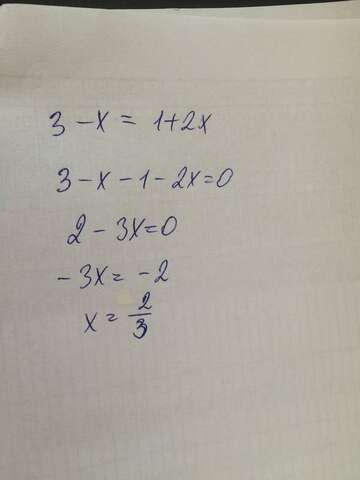 3 - x = 1+2x
3 - x - 1 - 2x=0
2 - 3x=0
- 3x = - 2
x = 2/3